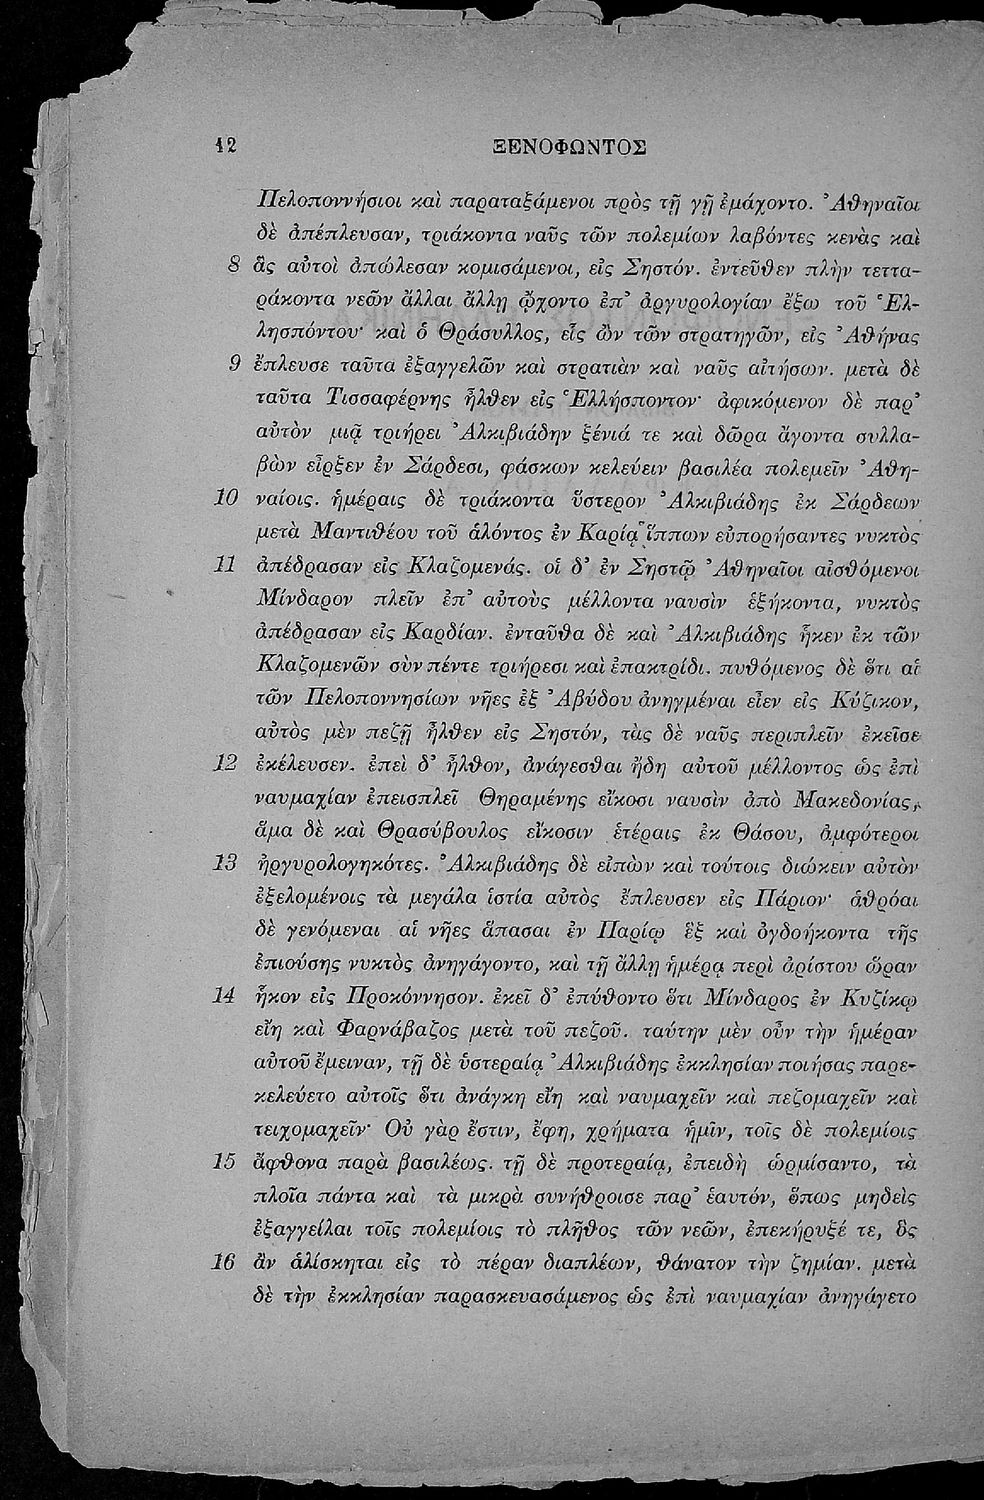 12 ΞΕΝΟΦΩΝΤΟΣ
Πελοποννήσιοι καὶ παραταξάμενοι πρὸς τῇ γῇ ἐμάχοντο. Ἀθηναῖοι
δὲ ἀπέπλευσαν, τριάκοντα ναῦς τῶν πολεμίων λαβόντες κενὰς καὶ
8 ἃς αὐτοὶ ἀπώλεσαν κομισάμενοι, εἰς Σηστόν. ἐντεῦθεν πλὴν τεττα-
ράκοντα νεῶν ἄλλαι ἄλλῃ ᾤχοντο ἐπ᾽ ἀργυρολογίαν ἔξω τοῦ Ἑλ-
λησπόντου· καὶ ὁ Θράσυλλος, εἷς ὢν τῶν στρατηγῶν, εἰς Ἀθήνας
9 ἔπλευσε ταῦτα ἐξαγγελῶν καὶ στρατιὰν καὶ ναῦς αἰτήσων. μετὰ δὲ
ταῦτα Τισσαφέρνης ἦλθεν εἰς Ἑλλήσποντον· ἀφικόμενον δὲ παρ᾽
αὐτὸν μιᾷ τριήρει Ἀλκιβιάδην ξένιά τε καὶ δῶρα ἄγοντα συλλα-
βὼν εἶρξεν ἐν Σάρδεσι, φάσκων κελεύειν βασιλέα πολεμεῖν Ἀθη-
10 ναίοις. ἡμέραις δὲ τριάκοντα ὕστερον Ἀλκιβιάδης ἐκ Σάρδεων
μετὰ Μαντιθέου τοῦ ἁλόντος ἐν Καρίᾳ ἵππων εὐπορήσαντες νυκτὸς
11 ἀπέδρασαν εἰς Κλαζομενάς. οἱ δ᾽ ἐν Σηστῷ Ἀθηναῖοι αἰσθόμενοι
Μίνδαρον πλεῖν ἐπ᾽ αὐτοὺς μέλλοντα ναυσὶν ἑξήκοντα, νυκτὸς
ἀπέδρασαν εἰς Καρδίαν. ἐνταῦθα δὲ καὶ Ἀλκιβιάδης ἧκεν ἐκ τῶν
Κλαζομενῶν σὺν πέντε τριήρεσι καὶ ἐπακτρίδι. πυθόμενος δὲ ὅτι αἱ
τῶν Πελοποννησίων νῆες ἐξ Ἀβύδου ἀνηγμέναι εἶεν εἰς Κύζικον,
αὐτὸς μὲν πεζῇ ἦλθεν εἰς Σηστόν, τὰς δὲ ναῦς περιπλεῖν ἐκεῖσε
12 ἐκέλευσεν. ἐπεὶ δ᾽ ἦλθον, ἀνάγεσθαι ἤδη αὐτοῦ μέλλοντος ὡς ἐπὶ
ναυμαχίαν ἐπεισπλεῖ Θηραμένης εἴκοσι ναυσὶν ἀπὸ Μακεδονίας,
ἅμα δὲ καὶ Θρασύβουλος εἴκοσιν ἑτέραις ἐκ Θάσου, ἀμφότεροι
13 ἠργυρολογηκότες. Ἀλκιβιάδης δὲ εἰπὼν καὶ τούτοις διώκειν αὐτὸν
ἐξελομένοις τὰ μεγάλα ἱστία αὐτὸς ἔπλευσεν εἰς Πάριον· ἁθρόαι
δὲ γενόμεναι αἱ νῆες ἅπασαι ἐν Παρίῳ ἓξ καὶ ὀγδοήκοντα τῆς
ἐπιούσης νυκτὸς ἀνηγάγοντο, καὶ τῇ ἄλλῃ ἡμέρᾳ περὶ ἀρίστου ὥραν
14 ἧκον εἰς Προκόννησον. ἐκεῖ δ᾽ ἐπύθοντο ὅτι Μίνδαρος ἐν Κυζίκῳ
εἴη καὶ Φαρνάβαζος μετὰ τοῦ πεζοῦ. ταύτην μὲν οὖν τὴν ἡμέραν
αὐτοῦ ἔμειναν, τῇ δὲ ὑστεραίᾳ Ἀλκιβιάδης ἐκκλησίαν ποιήσας παρε-
κελεύετο αὐτοῖς ὅτι ἀνάγκη εἴη καὶ ναυμαχεῖν καὶ πεζομαχεῖν καὶ
τειχομαχεῖν· Οὐ γὰρ ἔστιν, ἔφη, χρήματα ἡμῖν, τοῖς δὲ πολεμίοις
15 ἄφθονα παρὰ βασιλέως. τῇ δὲ προτεραίᾳ, ἐπειδὴ ὡρμίσαντο, τὰ
πλοῖα πάντα καὶ τὰ μικρὰ συνήθροισε παρ᾽ ἑαυτόν, ὅπως μηδεὶς
ἐξαγγείλαι τοῖς πολεμίοις τὸ πλῆθος τῶν νεῶν, ἐπεκήρυξέ τε, ὃς
16 ἂν ἁλίσκηται εἰς τὸ πέραν διαπλέων, θάνατον τὴν ζημίαν. μετὰ
δὲ τὴν ἐκκλησίαν παρασκευασάμενος ὡς ἐπὶ ναυμαχίαν ἀνηγάγετο